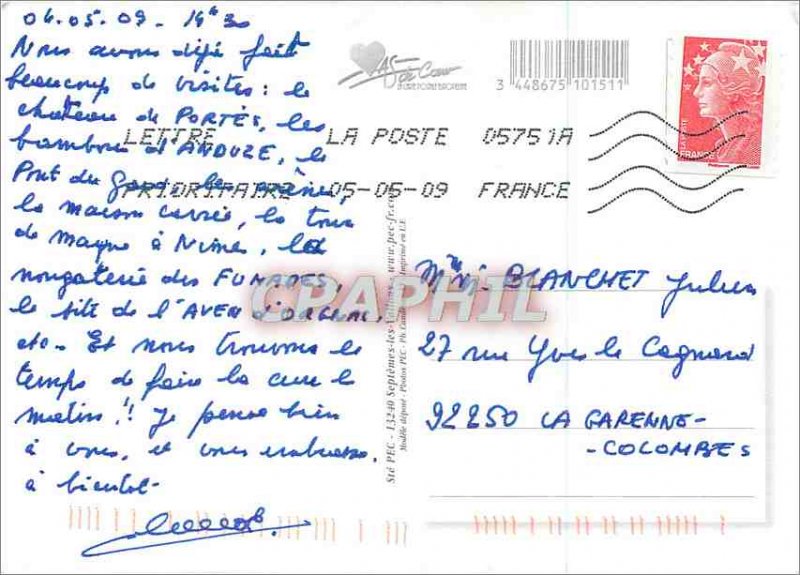 04.05.09 - 14h30
Nous avons déjà fait
beaucoup de visites : le
chateau de PORTES, les
bambous d'ANDUZE, le
Pont du Gard, les arènes,
la maison carrée, la tour
de magne à Nîmes, la
nougaterie des FUMADES,
le site de l'AVEN d'ORGNAC,
etc - Et nous trouvons le
temps de faire la cure le
matin !! Je pense bien
à vous, et vous embrasse.
à bientot -
AS de Coeur
3 448675 101511
LETTRE LA POSTE 05751A
PRIORITAIRE 05-05-09 FRANCE
LA POSTE
FRANCE
Sté PEC - 13240 Septèmes-les-Vallons - www.pec-fr.com
Modèle déposé - Photos PEC - Imprimé en U.E
BLANCHET Julien
27 rue Yves le Cagnard
92250 LA GARENNE-
-COLOMBES
CPAPHIL